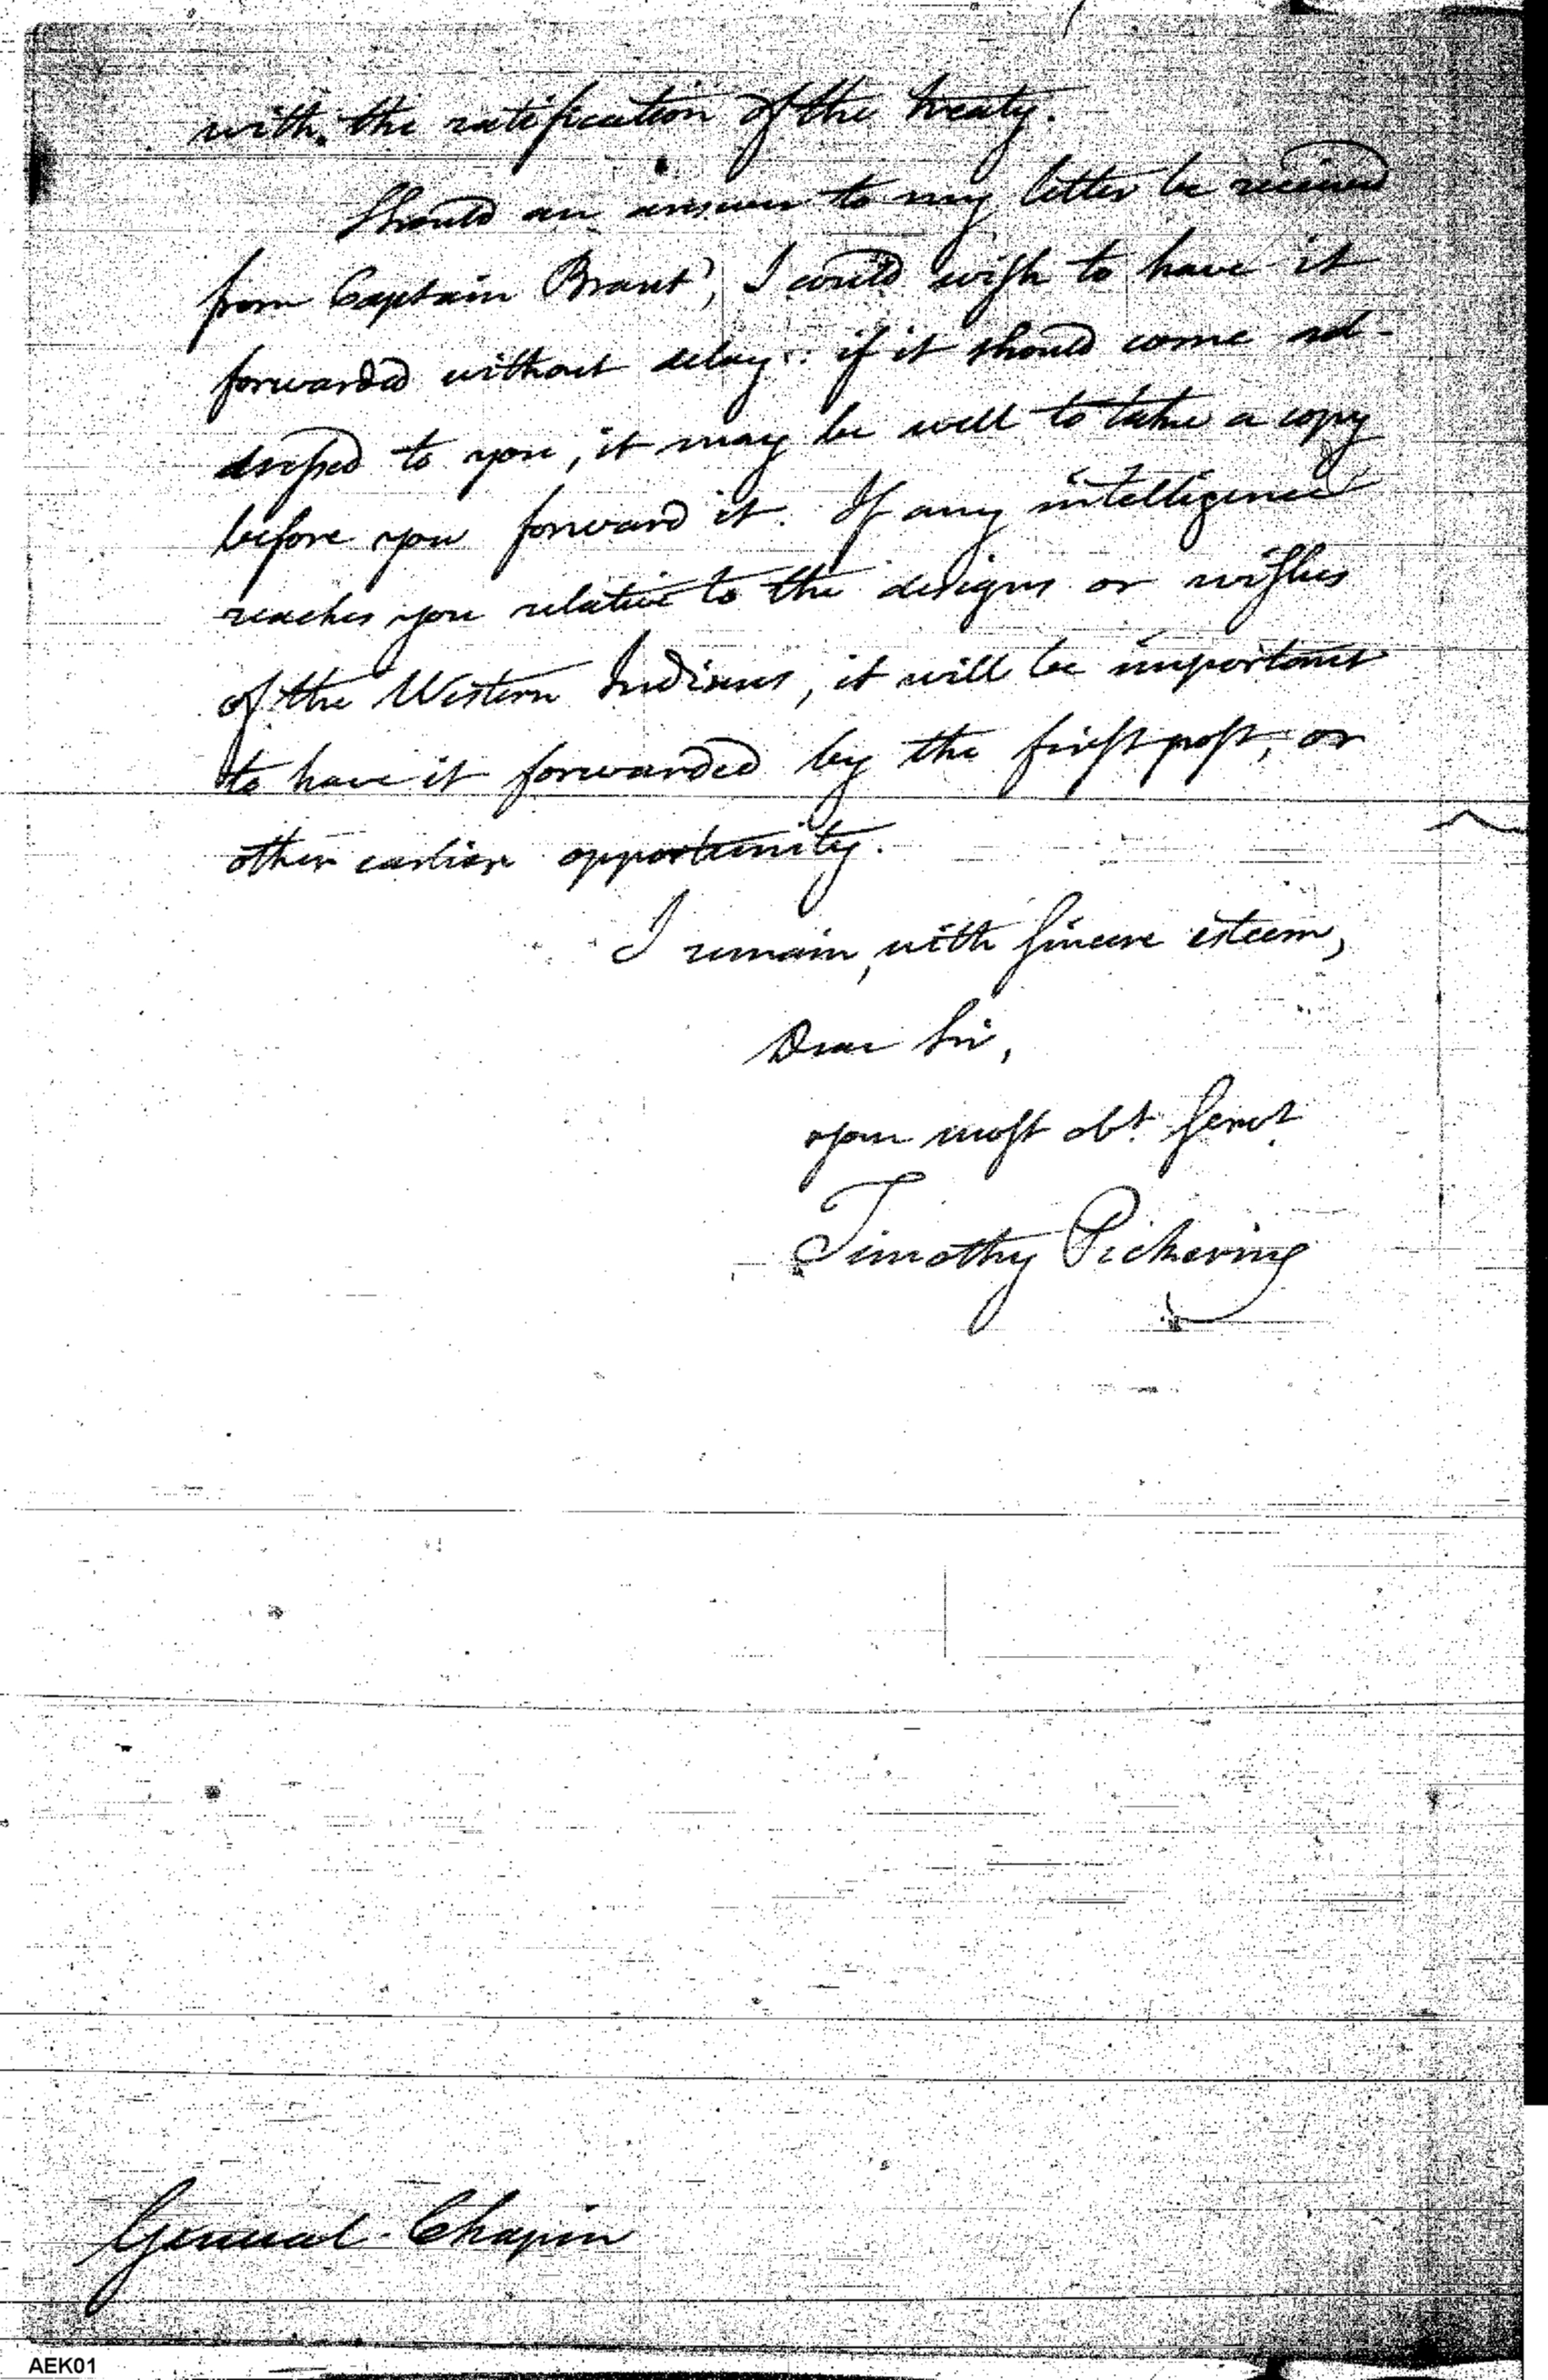 with the ratification of the treaty.
Should an answer to my letter be received
from Captain Brant, I could wish to have it
forwarded without delay: if it should come ad-
dressed to you, it may be well to take a copy
before you forward it. If any intelligence
reaches you relative to the designs or wishes
of the Western Indians, it will be important
to have it forwarded by the first post, or
other earlier opportunity.
I remain, with sincere esteem,
Dear Sir,
your most obt. servt.
Timothy Pickering
General Chapin
AEK01